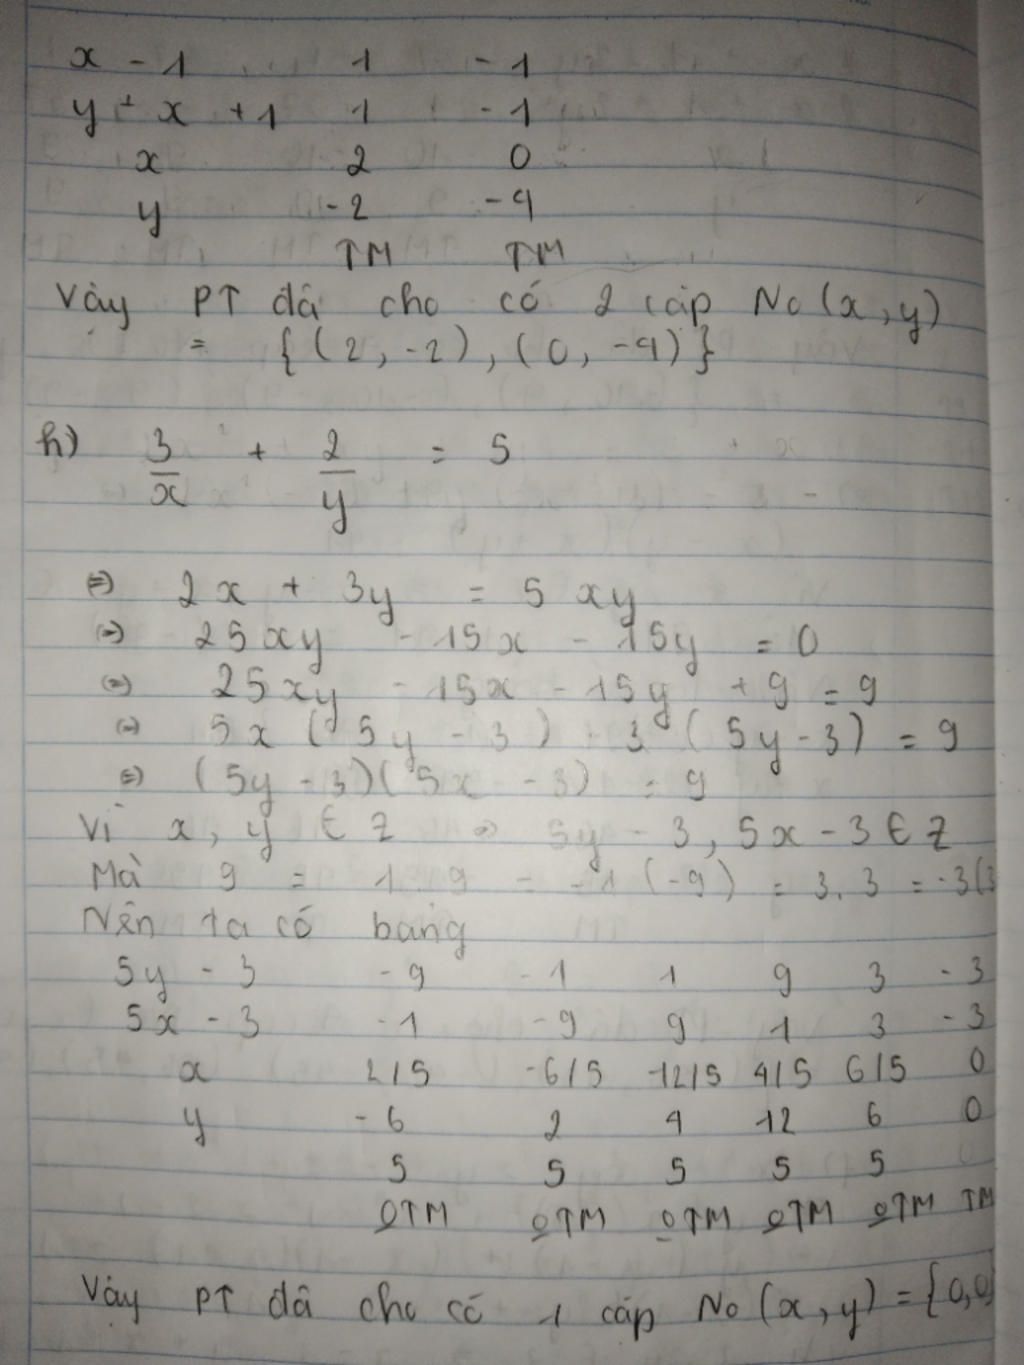 x - 1 1 - 1
y + x + 1 1 - 1
x 2 0
y - 2 - 4
TM TM
Vậy PT đã cho có 2 cặp No (x, y)
= {(2, -2), (0, -4)}
h) 3/x + 2/y = 5
⇔) 2x + 3y = 5xy
⇔) 25xy - 15x - 15y = 0
⇔) 25xy - 15x - 15y + 9 = 9
⇔) 5x (5y - 3) - 3 (5y - 3) = 9
⇔) (5y - 3)(5x - 3) = 9
Vì x, y ∈ Z ⇒ 5y - 3, 5x - 3 ∈ Z
Mà 9 = 1.9 = -1(-9) = 3.3 = -3(3
Nên ta có bảng
5y - 3 - 9 - 1 1 9 3 - 3
5x - 3 - 1 - 9 9 1 3 - 3
x 2/5 -6/5 12/5 4/5 6/5 0
y - 6 2 4 12 6 0
5 5 5 5 5
0TM 0TM 0TM 0TM 0TM TM
Vậy PT đã cho có 1 cặp No (x, y) = {0,0}